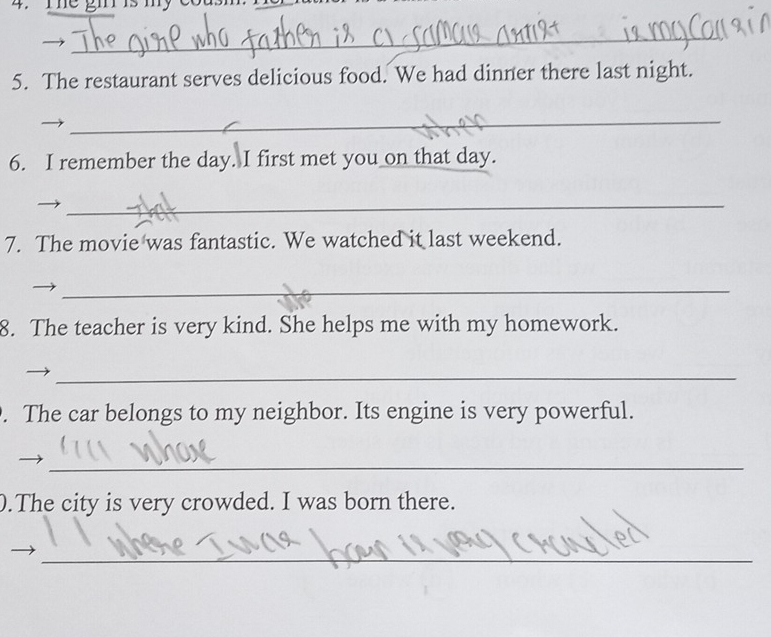 4. The girl is my cousin. Her father is a
→ The girl who father is a samous artist is my Cousin
5. The restaurant serves delicious food. We had dinner there last night.
→
when
6. I remember the day. I first met you on that day.
→ that
7. The movie was fantastic. We watched it last weekend.
→
who
8. The teacher is very kind. She helps me with my homework.
→
. The car belongs to my neighbor. Its engine is very powerful.
→ whose
0. The city is very crowded. I was born there.
→ where I was born is very crowded